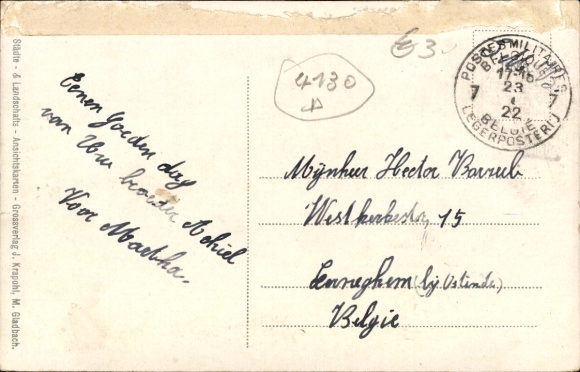 Städte - & Landschafts - Ansichtskarten - Grossvertag J. Krapohl, M. Gladbach.
€3
4130
POSTES MILITAIRES
BELGIQUE
7 17-18 7
23
I
22
BELGIE
LEGERPOSTERIJ
Eenen goeden dag
van Uw broeder Achiel
Voor Martha.
Mijnheer Hector
15
(bij Ostende)
Belgie